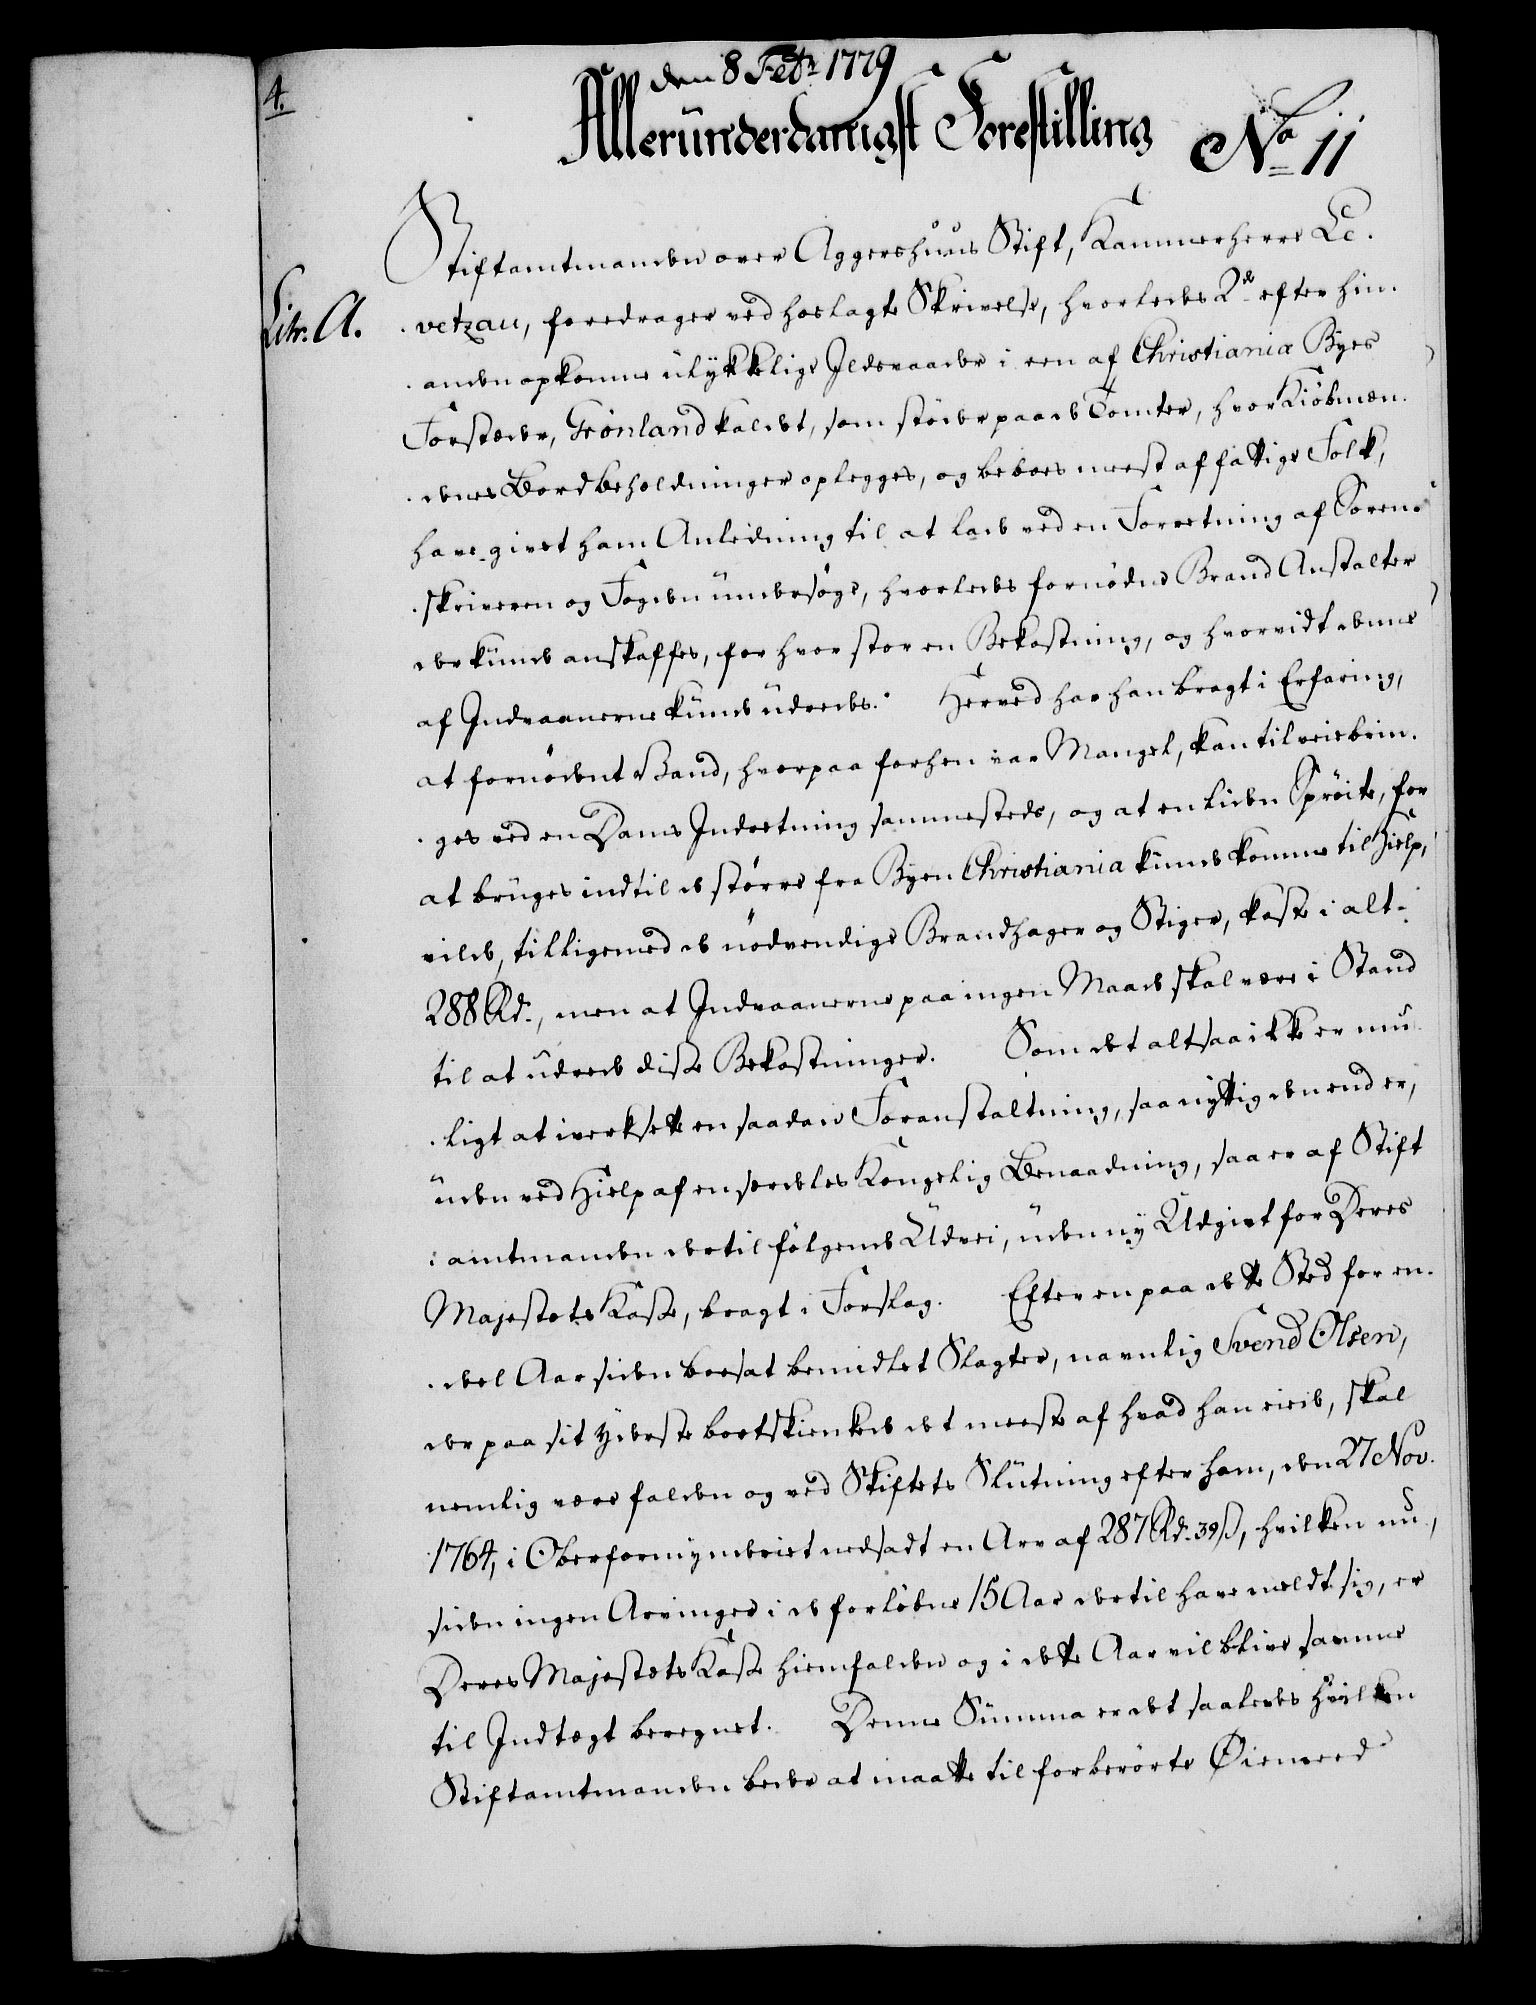 4.
den 8 Febr 1779
Alleründerdanigst Forestilling No 11
Stiftamtmanden over Aggershuus Stift, Kammerherre Le-
Litr. A.
vetzau, foredrager ved hoslagte Skrivelse, hvorledes 2de efter hin-
anden opkomne ulykkelige Ildsvaader i een af Christianiæ Byes
Forstæder, Grønland kaldet, som støder paa de Tomter, hvor Kiøbmæn-
denes Bordbeholdninger oplegges, og beboes meest af fattige Folk,
have givet ham Anledning til at lade ved en Forretning af Soren-
skriveren og Fogden undersøge, hvorledes fornødne Brand Anstalter
der kunde anskaffes, for hvor stor en Bekostning, og hvorvidt denne
af Indvaanerne kunde udredes. Herved har han bragt i Erfaring,
at fornødent Vand, hvorpaa forhen var Mangel, kan tilveiebrin-
ges ved en Dams Indretning sammesteds, og at en liden Sprøite, for
at bruges indtil de større fra Byen Christiania kunde komme til Hielp,
vilde, tilligemed de nødvendige Brandhager og Stiger, koste i alt
288 Rd., men at Indvaanerne paa ingen Maade skal være i Stand
til at udrede disse Bekostninger. Som det altsaa ikke er mu-
ligt at iverksette en saadan Foranstaltning, saa nyttig den end er,
uden ved Hielp af en særdeles Kongelig Benaadning, saa er af Stift
amtmanden dertil følgende Udvei, uden ny Udgivt for Deres
Majestets Kasse, bragt i Forslag. Efter en paa dette Sted for en-
del Aar siden boesat bemidlet Slagter, navnlig Svend Olsen,
der paa sit yderste bortskienkede det meeste af hvad han eiede, skal
nemlig være falden og ved Skiftets Slutning efter ham, den 27 Nov.
1764, i Oberformynderiet nedsadt en Arv af 287 Rd. 39 ß, hvilken nu,
siden ingen Arvinger i de forløbne 15 Aar dertil have meldt sig, er
Deres Majestets Kasse hiemfalden og i dette Aar vil blive samme
til Indtægt beregnet. Denne Summa er det saaledes hvilken
Stiftamtmanden beder at maatte til forberørte Øiemeed